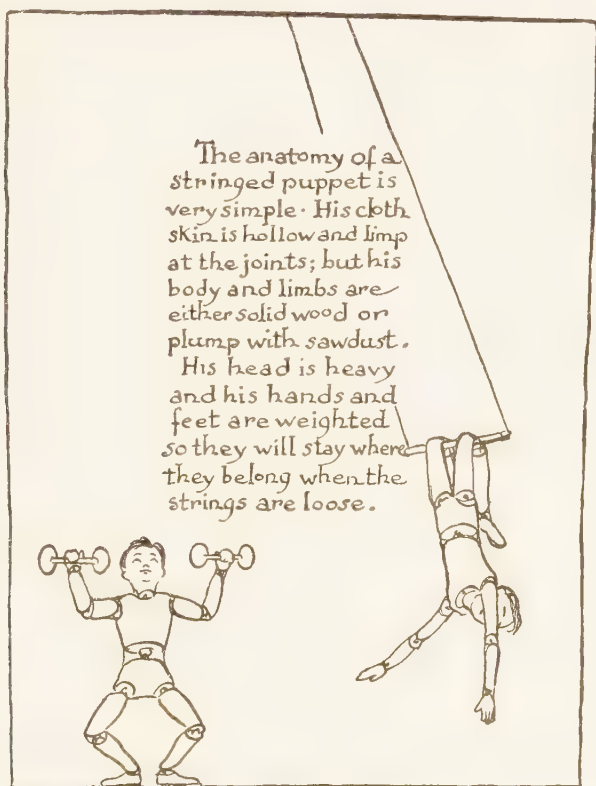 The anatomy of a
stringed puppet is
very simple. His cloth
skin is hollow and limp
at the joints; but his
body and limbs are
either solid wood or
plump with sawdust.
His head is heavy
and his hands and
feet are weighted
so they will stay where
they belong when the
strings are loose.